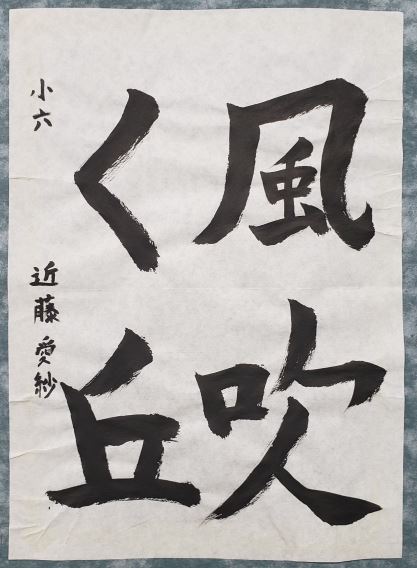 風吹
く丘
小六 近藤愛紗